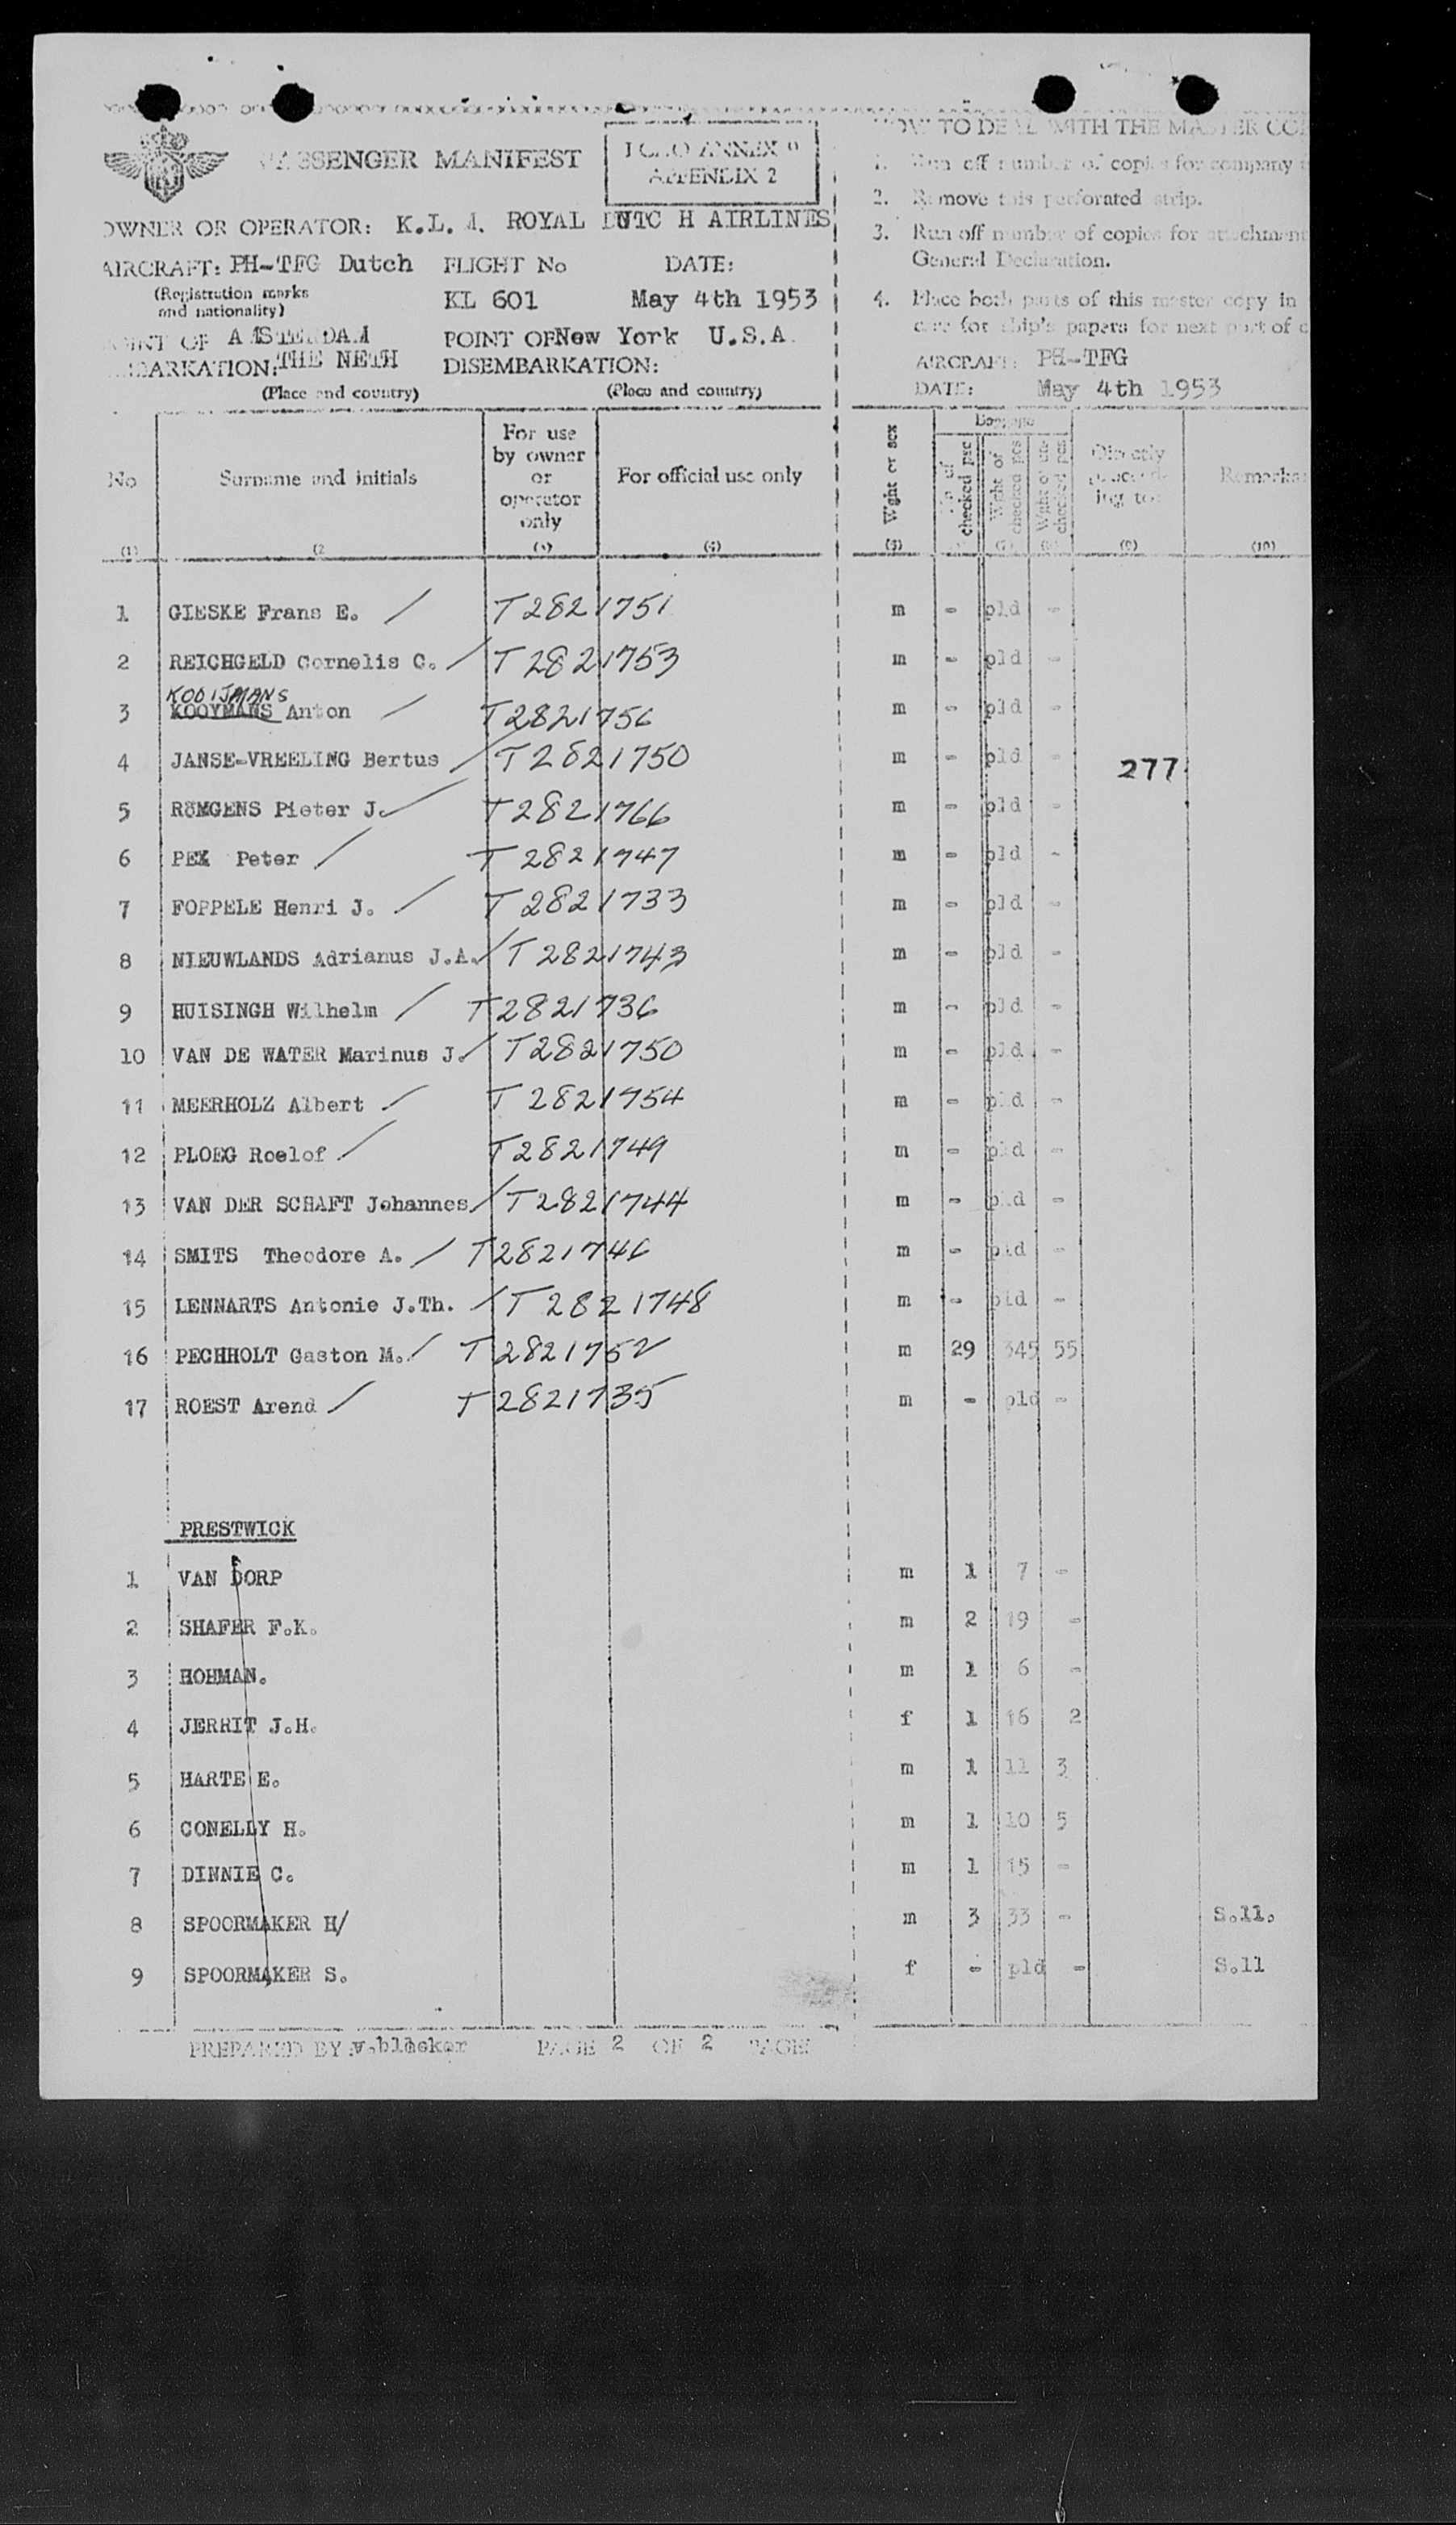 PASSENGER MANIFEST
ICAO ANNEX 9
APPENDIX 2
OWNER OR OPERATOR: K.L.M. ROYAL DUTC H AIRLINES
AIRCRAFT: PH-TFG Dutch FLIGHT No DATE:
(Registration marks and nationality) KL 601 May 4th 1953
POINT OF EMBARKATION: AMSTERDAM THE NETH
POINT OF DISEMBARKATION: New York U.S.A.
(Place and country) (Place and country)
HOW TO DEAL WITH THE MASTER
1. Run off number of copies for company
2. Remove this perforated strip.
3. Run off number of copies for attachment
General Declaration.
4. Place both parts of this master copy in
for ship's papers for next part of
AIRCRAFT: PH-TFG
DATE: May 4th 1953
No Surname and initials For use by owner or operator only For official use only Wght or sex checked pcs Wght of checked pcs Directly proceeding to: Remarks
(1) (2 (3) (4) (5) (9) (10)
1 GIESKE Frans E. / T2821751 m - pld -
2 REICHGELD Cornelis C. / T2821753 m - pld -
KOOIJMANS
3 KOOYMANS Anton / T2821756 m - pld -
4 JANSE-VREELING Bertus / T2821750 m - pld - 277
5 RÖMGENS Pieter J. / T2821766 m - pld -
6 PEX Peter / T2821747 m - pld -
7 FOPPELE Henri J. / T2821733 m - pld -
8 NIEUWLANDS Adrianus J.A. / T2821743 m - pld -
9 HUISINGH Wilhelm / T2821736 m - pld -
10 VAN DE WATER Marinus J. / T2821750 m - pld -
11 MEERHOLZ Albert / T2821754 m - pld -
12 PLOEG Roelof / T2821749 m - pld -
13 VAN DER SCHAFT Johannes / T2821744 m - pld -
14 SMITS Theodore A. / T2821746 m - pld -
15 LENNARTS Antonie J.Th. / T2821748 m - pld -
16 PECHHOLT Gaston M. / T2821752 m 29 345 55
17 ROEST Arend / T2821735 m - pld -
PRESTWICK
1 VAN DORP m 1 7 -
2 SHAFER F.K. m 2 19 -
3 HOHMAN. m 1 6 -
4 JERRIT J.H. f 1 16 2
5 HARTE E. m 1 11 3
6 CONELLY H. m 1 10 5
7 DINNIE C. m 1 15 -
8 SPOORMAKER H/ m 3 33 - S.11.
9 SPOORMAKER S. f - pld - S.11
PREPARED BY PAGE 2 OF 2 PAGES